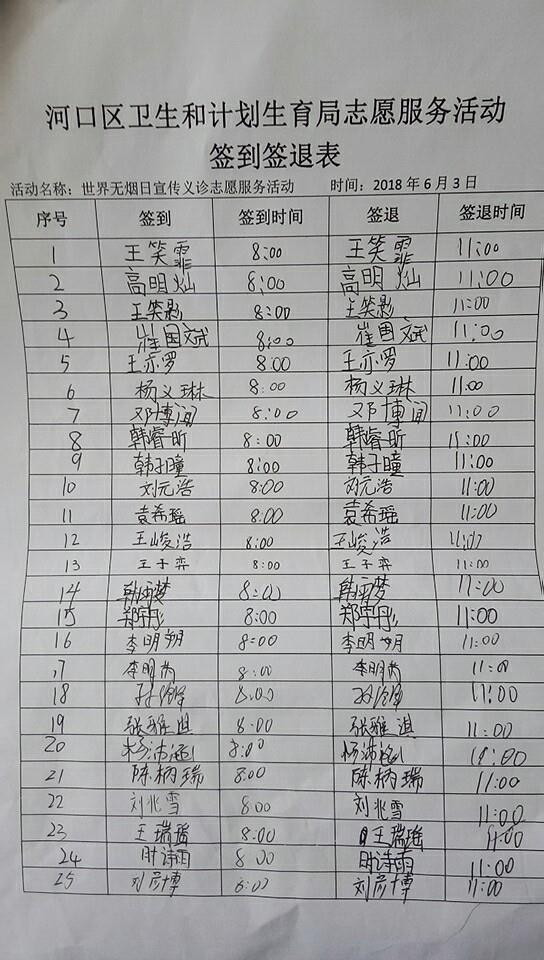 河口区卫生和计划生育局志愿服务活动
签到签退表
活动名称：世界无烟日宣传义诊志愿服务活动 时间：2018年6月3日
序号 签到 签到时间 签退 签退时间
1 王笑霏 8:00 王笑霏 11:00
2 高明灿 8:00 高明灿 11:00
3 王笑影 8:00 王笑影 11:00
4 崔国斌 8:00 崔国斌 11:00
5 王亦罗 8:00 王亦罗 11:00
6 杨义琳 8:00 杨义琳 11:00
7 邓博闻 8:00 邓博闻 11:00
8 韩睿昕 8:00 韩睿昕 11:00
9 韩子瞳 8:00 韩子瞳 11:00
10 刘元浩 8:00 刘元浩 11:00
11 袁希瑶 8:00 袁希瑶 11:00
12 王峻浩 8:00 王峻浩 11:00
13 王子弈 8:00 王子弈 11:00
14 8:00 11:00
15 郑宇彤 8:00 郑宇彤 11:00
16 李明朔 8:00 李明朔 11:00
17 李明芮 8:00 李明芮 11:00
18 8:00 11:00
19 张雅淇 8:00 张雅淇 11:00
20 杨沛涵 8:00 杨沛涵 11:00
21 陈柄瑞 8:00 陈柄瑞 11:00
22 刘兆雪 8:00 刘兆雪 11:00
23 王瑞瑶 8:00 王瑞瑶 11:00
24 时诗雨 8:00 时诗雨 11:00
25 刘彦博 8:00 刘彦博 11:00